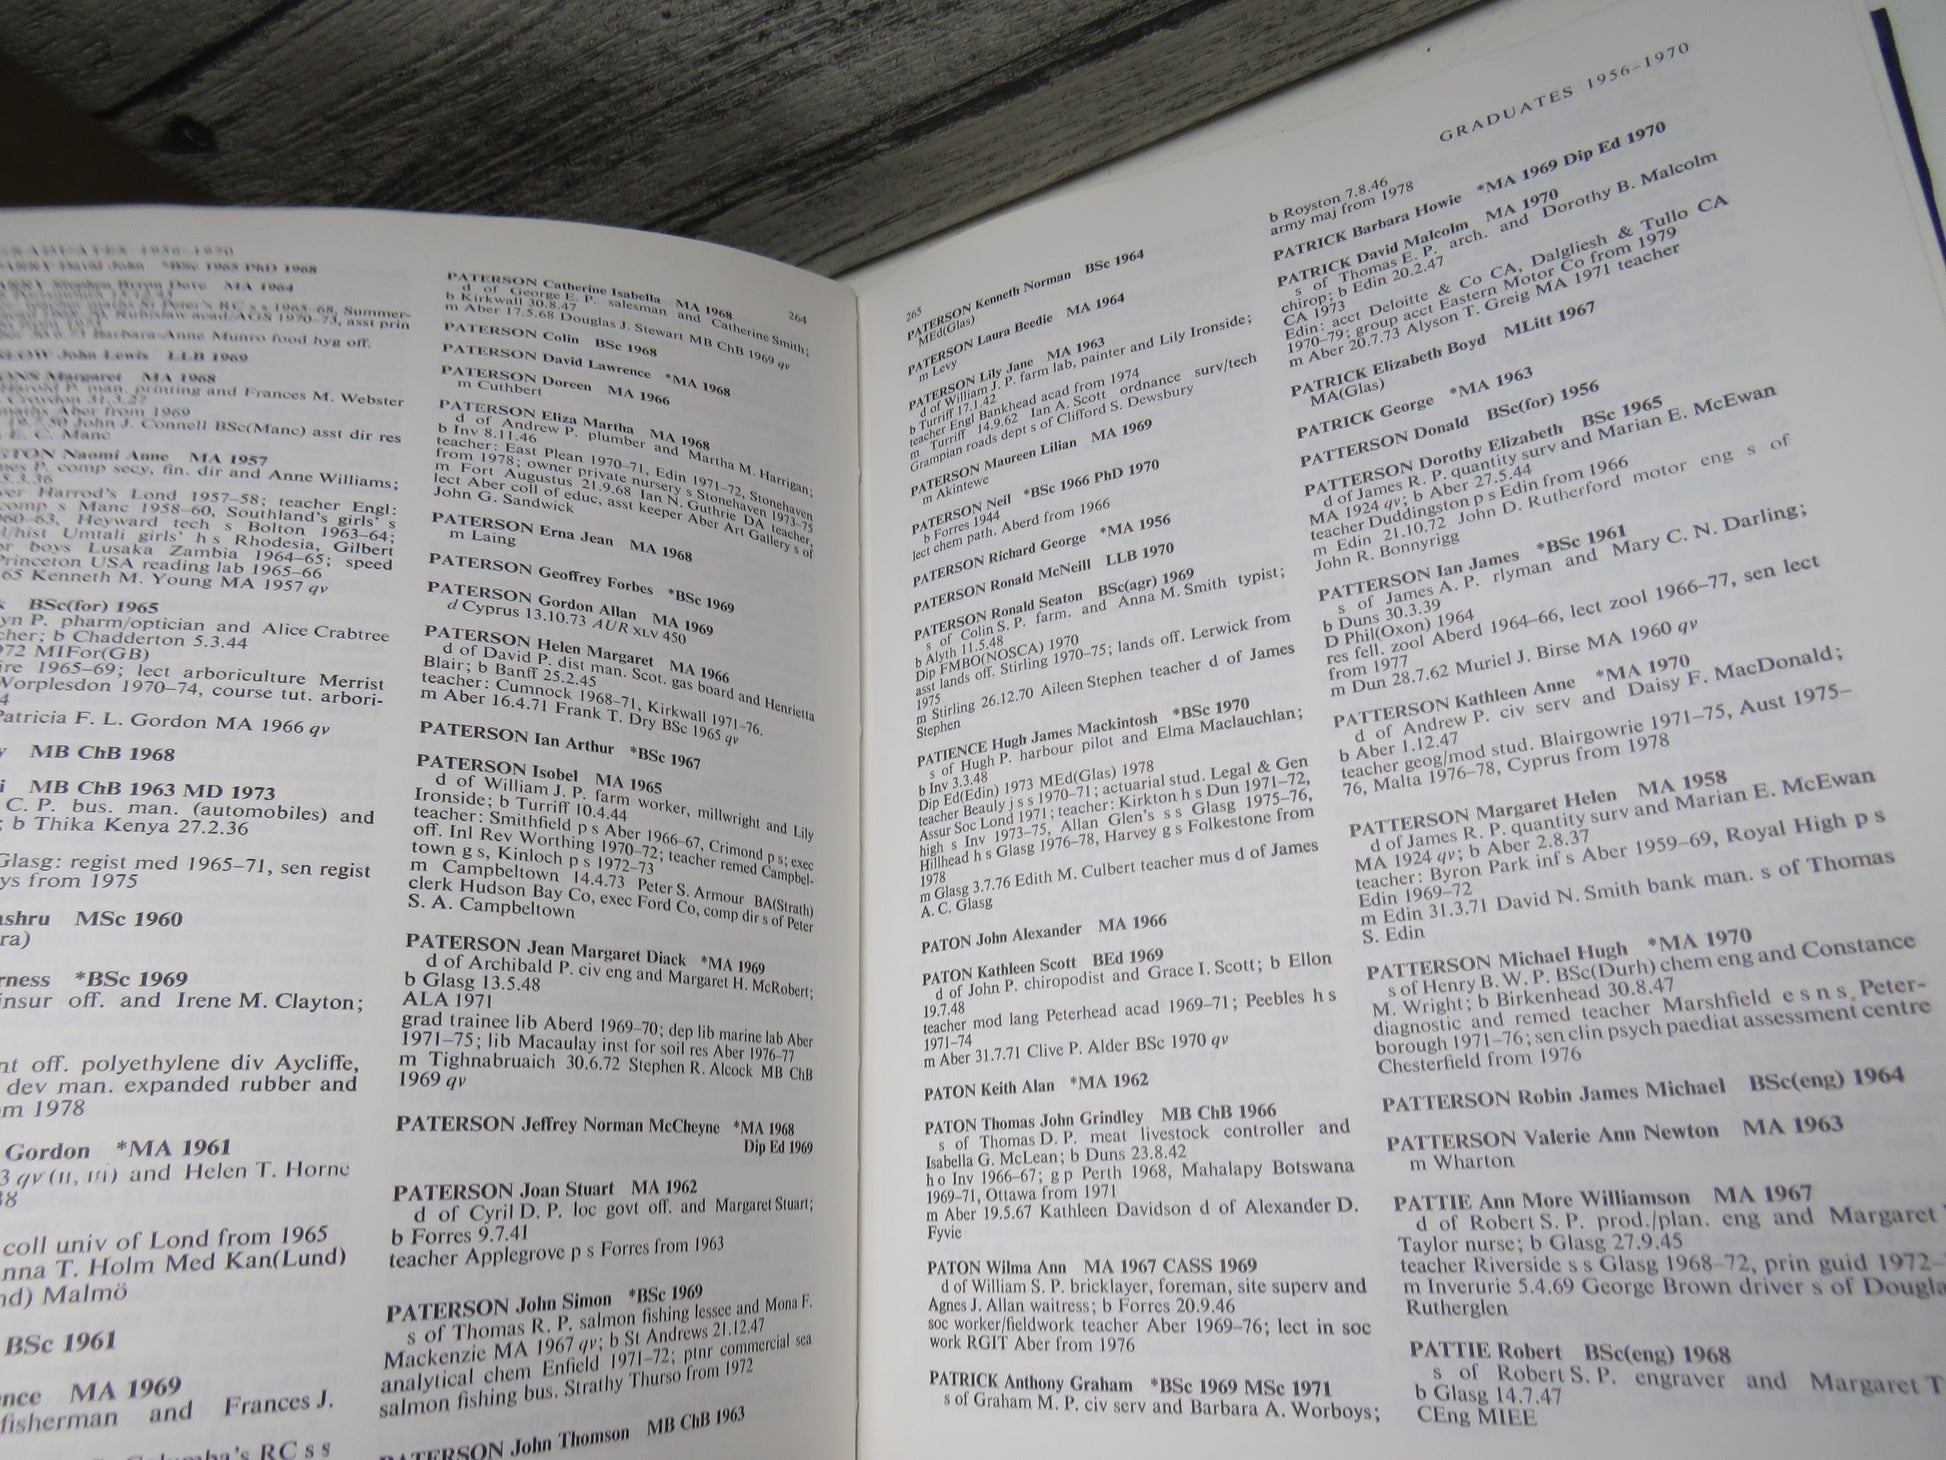 GRADUATES 1956–1970
David John *BSc 1965 PhD 1968
MA 1964
Barbara-Anne Munro food hyg off.
John Lewis LLB 1969
Margaret MA 1968
man. printing and Frances M. Webster
Crowdon 31.3.27
maths Aber from 1969
John J. Connell BSc(Manc) asst dir res
E. C. Manc
Naomi Anne MA 1957
P. comp secy, fin. dir and Anne Williams;
Harrod's Lond 1957–58; teacher Engl:
comp s Manc 1958–60, Southland's girls' s
Heyward tech s Bolton 1963–64;
Umtali girls' h s Rhodesia, Gilbert
boys Lusaka Zambia 1964–65; speed
Princeton USA reading lab 1965–66
65 Kenneth M. Young MA 1957 qv
BSc(for) 1965
P. pharm/optician and Alice Crabtree
b Chadderton 5.3.44
MIFor(GB)
1965–69; lect arboriculture Merrist
Worplesdon 1970–74, course tut. arbori-
Patricia F. L. Gordon MA 1966 qv
MB ChB 1968
MB ChB 1963 MD 1973
C. P. bus. man. (automobiles) and
; b Thika Kenya 27.2.36
Glasg: regist med 1965–71, sen regist
ys from 1975
ashru MSc 1960
ra)
rness *BSc 1969
insur off. and Irene M. Clayton;
nt off. polyethylene div Aycliffe,
dev man. expanded rubber and
m 1978
Gordon *MA 1961
3 qv (ii, iii) and Helen T. Horne
38
coll univ of Lond from 1965
nna T. Holm Med Kan(Lund)
nd) Malmö
BSc 1961
ence MA 1969
fisherman and Frances J.
Columba's RC s s
264
PATERSON Catherine Isabella MA 1968
d of George E. P. salesman and Catherine Smith;
b Kirkwall 30.8.47
m Aber 17.5.68 Douglas J. Stewart MB ChB 1969 qv
PATERSON Colin BSc 1968
PATERSON David Lawrence *MA 1968
PATERSON Doreen MA 1966
m Cuthbert
PATERSON Eliza Martha MA 1968
d of Andrew P. plumber and Martha M. Harrigan;
b Inv 8.11.46
teacher: East Plean 1970–71, Edin 1971–72, Stonehaven
from 1978; owner private nursery s Stonehaven 1973–75
m Fort Augustus 21.9.68 Ian N. Guthrie DA teacher,
lect Aber coll of educ, asst keeper Aber Art Gallery s of
John G. Sandwick
PATERSON Erna Jean MA 1968
m Laing
PATERSON Geoffrey Forbes *BSc 1969
PATERSON Gordon Allan MA 1969
d Cyprus 13.10.73 AUR XLV 450
PATERSON Helen Margaret MA 1966
d of David P. dist man. Scot. gas board and Henrietta
Blair; b Banff 25.2.45
teacher: Cumnock 1968–71, Kirkwall 1971–76.
m Aber 16.4.71 Frank T. Dry BSc 1965 qv
PATERSON Ian Arthur *BSc 1967
PATERSON Isobel MA 1965
d of William J. P. farm worker, millwright and Lily
Ironside; b Turriff 10.4.44
teacher: Smithfield p s Aber 1966–67, Crimond p s; exec
off. Inl Rev Worthing 1970–72; teacher remed Campbel-
town g s, Kinloch p s 1972–73
m Campbeltown 14.4.73 Peter S. Armour BA(Strath)
clerk Hudson Bay Co, exec Ford Co, comp dir s of Peter
S. A. Campbeltown
PATERSON Jean Margaret Diack *MA 1969
d of Archibald P. civ eng and Margaret H. McRobert;
b Glasg 13.5.48
ALA 1971
grad trainee lib Aberd 1969–70; dep lib marine lab Aber
1971–75; lib Macaulay inst for soil res Aber 1976–77
m Tighnabruaich 30.6.72 Stephen R. Alcock MB ChB
1969 qv
PATERSON Jeffrey Norman McCheyne *MA 1968
Dip Ed 1969
PATERSON Joan Stuart MA 1962
d of Cyril D. P. loc govt off. and Margaret Stuart;
b Forres 9.7.41
teacher Applegrove p s Forres from 1963
PATERSON John Simon *BSc 1969
s of Thomas R. P. salmon fishing lessee and Mona F.
Mackenzie MA 1967 qv; b St Andrews 21.12.47
analytical chem Enfield 1971–72; ptnr commercial sea
salmon fishing bus. Strathy Thurso from 1972
PATERSON John Thomson MB ChB 1963
265
PATERSON Kenneth Norman BSc 1964
MEd(Glas)
PATERSON Laura Beedie MA 1964
m Levy
PATERSON Lily Jane MA 1963
d of William J. P. farm lab, painter and Lily Ironside;
b Turriff 17.1.42
teacher Engl Bankhead acad from 1974
m Turriff 14.9.62 Ian A. Scott ordnance surv/tech
Grampian roads dept s of Clifford S. Dewsbury
PATERSON Maureen Lilian MA 1969
m Akintewe
PATERSON Neil *BSc 1966 PhD 1970
b Forres 1944
lect chem path. Aberd from 1966
PATERSON Richard George *MA 1956
PATERSON Ronald McNeill LLB 1970
PATERSON Ronald Seaton BSc(agr) 1969
s of Colin S. P. farm. and Anna M. Smith typist;
b Alyth 11.5.48
Dip FMBO(NOSCA) 1970
asst lands off. Stirling 1970–75; lands off. Lerwick from
1975
m Stirling 26.12.70 Aileen Stephen teacher d of James
Stephen
PATIENCE Hugh James Mackintosh *BSc 1970
s of Hugh P. harbour pilot and Elma Maclauchlan;
b Inv 3.3.48
Dip Ed(Edin) 1973 MEd(Glas) 1978
teacher Beauly j s s 1970–71; actuarial stud. Legal & Gen
Assur Soc Lond 1971; teacher: Kirkton h s Dun 1971–72,
high s Inv 1973–75, Allan Glen's s s Glasg 1975–76,
Hillhead h s Glasg 1976–78, Harvey g s Folkestone from
1978
m Glasg 3.7.76 Edith M. Culbert teacher mus d of James
A. C. Glasg
PATON John Alexander MA 1966
PATON Kathleen Scott BEd 1969
d of John P. chiropodist and Grace I. Scott; b Ellon
19.7.48
teacher mod lang Peterhead acad 1969–71; Peebles h s
1971–74
m Aber 31.7.71 Clive P. Alder BSc 1970 qv
PATON Keith Alan *MA 1962
PATON Thomas John Grindley MB ChB 1966
s of Thomas D. P. meat livestock controller and
Isabella G. McLean; b Duns 23.8.42
h o Inv 1966–67; g p Perth 1968, Mahalapy Botswana
1969–71, Ottawa from 1971
m Aber 19.5.67 Kathleen Davidson d of Alexander D.
Fyvie
PATON Wilma Ann MA 1967 CASS 1969
d of William S. P. bricklayer, foreman, site superv and
Agnes J. Allan waitress; b Forres 20.9.46
soc worker/fieldwork teacher Aber 1969–76; lect in soc
work RGIT Aber from 1976
PATRICK Anthony Graham *BSc 1969 MSc 1971
s of Graham M. P. civ serv and Barbara A. Worboys;
GRADUATES 1956–1970
b Royston 7.8.46
army maj from 1978
PATRICK Barbara Howie *MA 1969 Dip Ed 1970
PATRICK David Malcolm MA 1970
s of Thomas E. P. arch. and Dorothy B. Malcolm
chirop; b Edin 20.2.47
CA 1973
Edin: acct Deloitte & Co CA, Dalgliesh & Tullo CA
1970–79; group acct Eastern Motor Co from 1979
m Aber 20.7.73 Alyson T. Greig MA 1971 teacher
PATRICK Elizabeth Boyd MLitt 1967
MA(Glas)
PATRICK George *MA 1963
PATTERSON Donald BSc(for) 1956
PATTERSON Dorothy Elizabeth BSc 1965
d of James R. P. quantity surv and Marian E. McEwan
MA 1924 qv; b Aber 27.5.44
teacher Duddingston p s Edin from 1966
m Edin 21.10.72 John D. Rutherford motor eng s of
John R. Bonnyrigg
PATTERSON Ian James *BSc 1961
s of James A. P. rlyman and Mary C. N. Darling;
b Duns 30.3.39
D Phil(Oxon) 1964
res fell. zool Aberd 1964–66, lect zool 1966–77, sen lect
from 1977
m Dun 28.7.62 Muriel J. Birse MA 1960 qv
PATTERSON Kathleen Anne *MA 1970
d of Andrew P. civ serv and Daisy F. MacDonald;
b Aber 1.12.47
teacher geog/mod stud. Blairgowrie 1971–75, Aust 1975–
76, Malta 1976–78, Cyprus from 1978
PATTERSON Margaret Helen MA 1958
d of James R. P. quantity surv and Marian E. McEwan
MA 1924 qv; b Aber 2.8.37
teacher: Byron Park inf s Aber 1959–69, Royal High p s
Edin 1969–72
m Edin 31.3.71 David N. Smith bank man. s of Thomas
S. Edin
PATTERSON Michael Hugh *MA 1970
s of Henry B. W. P. BSc(Durh) chem eng and Constance
M. Wright; b Birkenhead 30.8.47
diagnostic and remed teacher Marshfield e s n s Peter-
borough 1971–76; sen clin psych paediat assessment centre
Chesterfield from 1976
PATTERSON Robin James Michael BSc(eng) 1964
PATTERSON Valerie Ann Newton MA 1963
m Wharton
PATTIE Ann More Williamson MA 1967
d of Robert S. P. prod./plan. eng and Margaret
Taylor nurse; b Glasg 27.9.45
teacher Riverside s s Glasg 1968–72, prin guid 1972–
m Inverurie 5.4.69 George Brown driver s of Dougla
Rutherglen
PATTIE Robert BSc(eng) 1968
s of Robert S. P. engraver and Margaret T
b Glasg 14.7.47
CEng MIEE